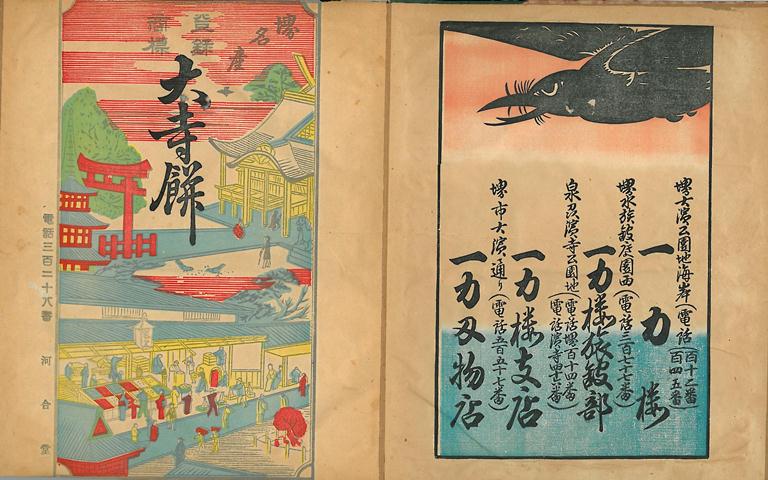 堺名産
登録
商標
大寺餅
電話三百二十八番 河合堂
堺大濱公園地海岸(電話百十二番 百四五番)
一力楼
堺水族舘庭園西(電話三百七十七番)
一力楼旅舘部
泉及濱寺公園地(電話堺百十四番 電話濱寺四十番)
一力楼支店
堺市大濱通り(電話五百五十七番)
一力刃物店